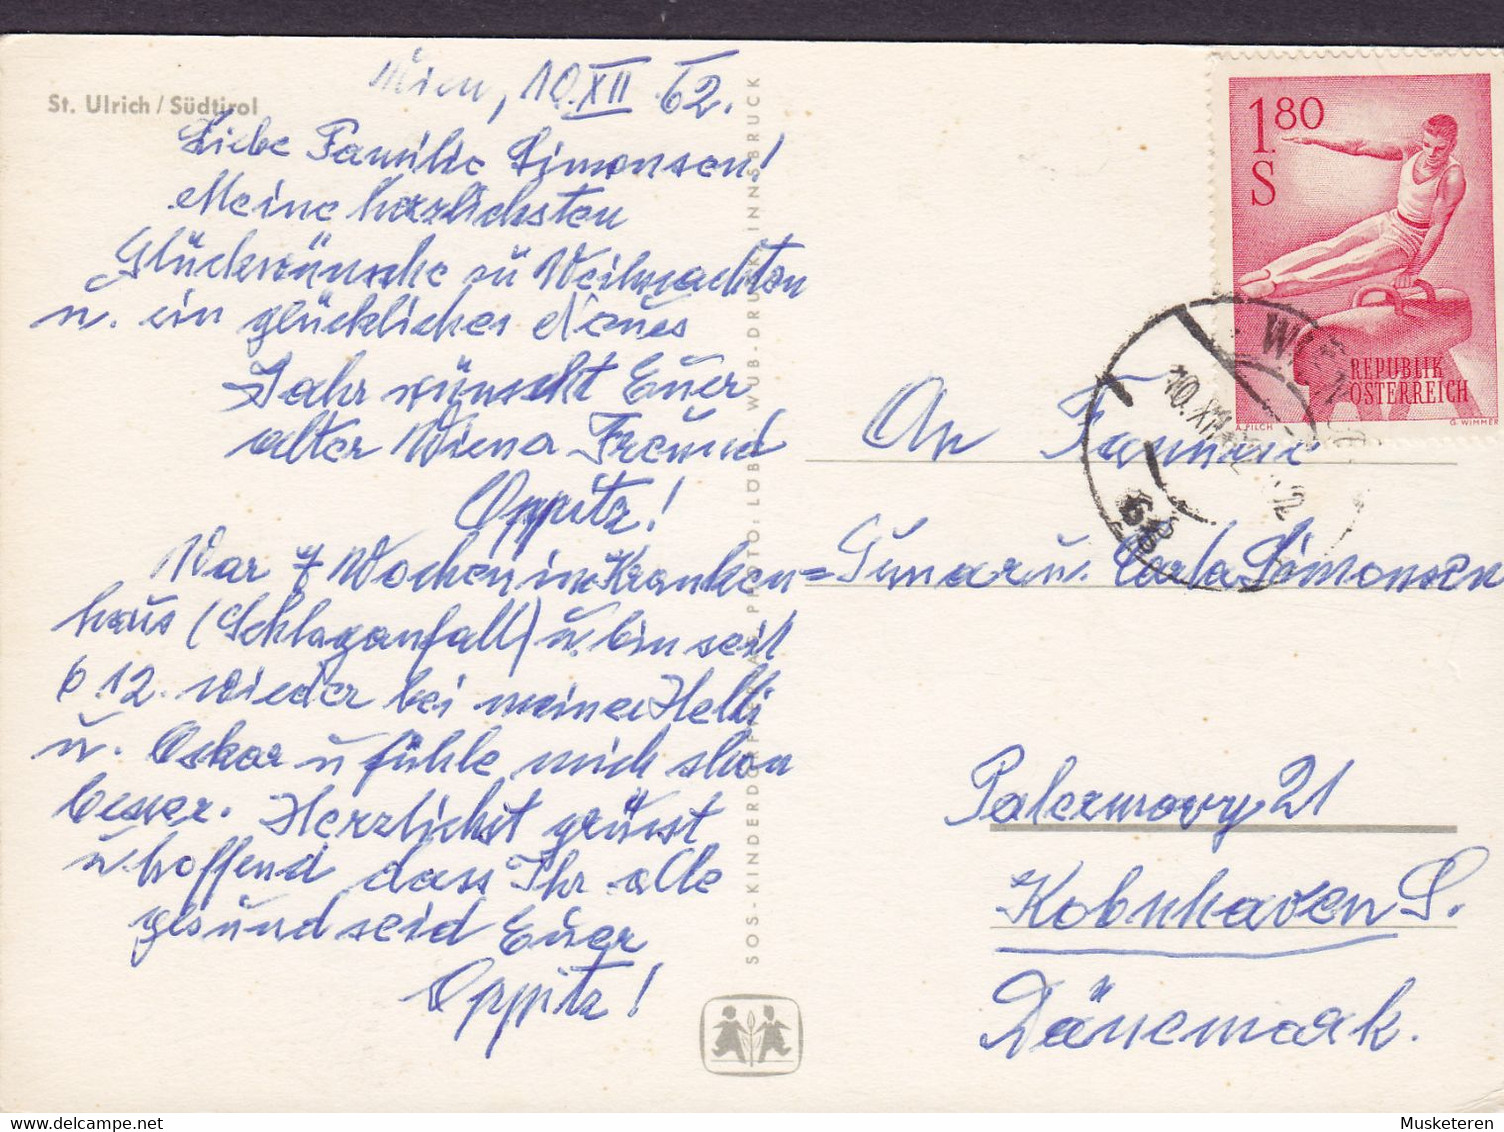 St. Ulrich / Südtirol
Wien, 10. XII 62.
Liebe Familie Simonsen!
Meine herzlichsten
Glückwünsche zu Weihnachten
u. ein glückliches Neues
Jahr wünscht Euer
alter Wiener Freund
Oppitz!
War 7 Wochen im Kranken=
haus (Schlaganfall) u. bin seit
6.12. wieder bei meiner Helli
u. Oskar u fühle mich schon
besser. Herzlichst grüsst
u hoffend dass Ihr alle
gesund seid Euer
Oppitz!
SOS-KINDERDORF PHOTO: LÖBL WUB-DRUCK INNSBRUCK
1.80
S
REPUBLIK
ÖSTERREICH
A. PILCH
G. WIMMER
WIEN
10. XII
12
An Familie
Gunnar u. Carla Simonsen
Palermovy 21
Kobnhaven S.
Dänemark.
Musketeren